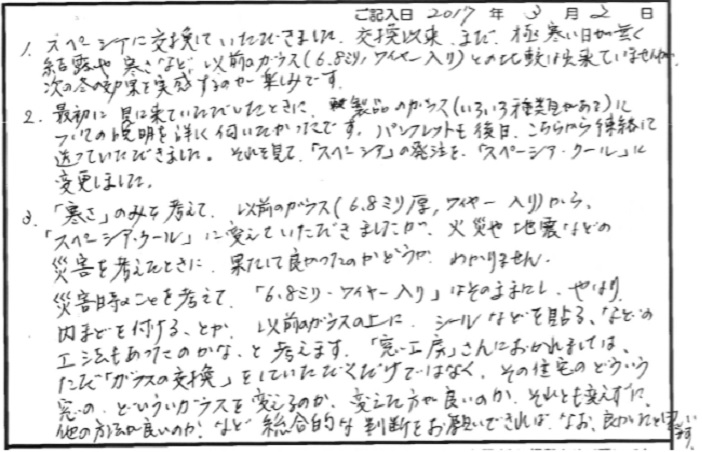 ご記入日 2017 年 3 月 2 日
1. スペーシアに交換していただきました。交換以来、まだ、極寒い日が無く
結露や寒さなど、以前のガラス(6.8ミリ,ワイヤー入り)との比較は出来ていませんが、
次の冬の効果を実感するのが楽しみです。
2. 最初に見に来ていただいたときに、製品のガラス(いろいろ種類がある)に
ついての説明を詳しく伺いたかったです。パンフレットも後日、こちらから連絡して
送っていただきました。それを見て、「スペーシア」の発注を、「スペーシア・クール」に
変更しました。
3. 「寒さ」のみを考えて、以前のガラス(6.8ミリ厚,ワイヤー入り)から、
「スペーシア・クール」に変えていただきましたが、火災や地震などの
災害を考えたときに、果たして良かったのかどうか、わかりません。
災害時のことを考えて、「6.8ミリ・ワイヤー入り」はそのままにし、やはり
内まどを付ける、とか、以前のガラスの上に、シールなどを貼る、などの
工法もあったのかな、と考えます。「窓工房」さんにおかれましては、
ただ「ガラスの交換」をしていただくだけではなく、その住宅のどういう
窓の、どういうガラスを変えるのか、変えた方が良いのか、それとも変えずに、
他の方法が良いのか、など総合的な判断をお願いできれば、なお、良かったと思います。